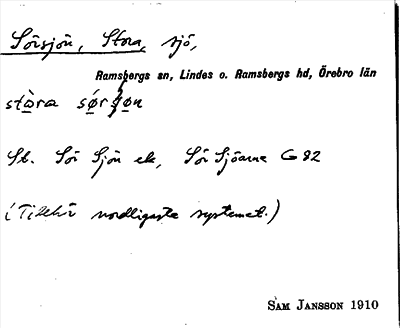 Sörsjön, Stora, sjö,
Ramsbergs sn, Lindes o. Ramsbergs hd, Örebro län
stòra sø̀rʃǫn
St. Sör Sjön elr, Sör Sjöarne G 82
(Tillhör nordligaste systemet.)
SAM JANSSON 1910